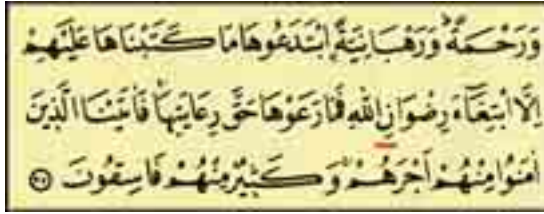 وَرَحْمَةً وَرَهْبَانِيَّةً ابْتَدَعُوهَا مَا كَتَبْنَاهَا عَلَيْهِمْ
اِلَّا ابْتِغَٓاءَ رِضْوَانِ اللّٰهِ فَمَا رَعَوْهَا حَقَّ رِعَايَتِهَا فَاٰتَيْنَا الَّذِينَ
اٰمَنُوا مِنْهُمْ اَجْرَهُمْ وَكَثِيرٌ مِنْهُمْ فَاسِقُونَ